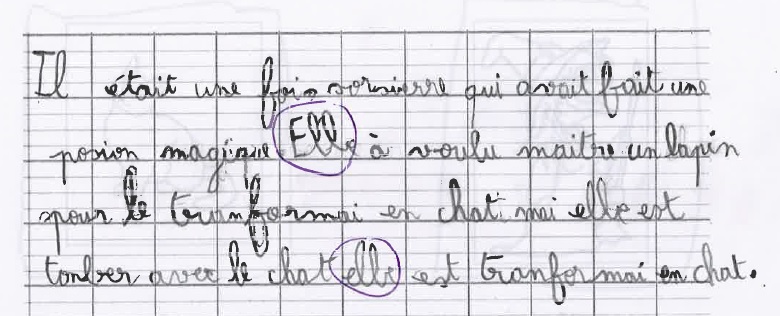 Il était une fois sorsierre qui avait fait une
posion magique. Elle à voulu maitre un lapin
pour le tranformai en chat. mai elle est
tonber avec le chat elle est tranformai en chat.